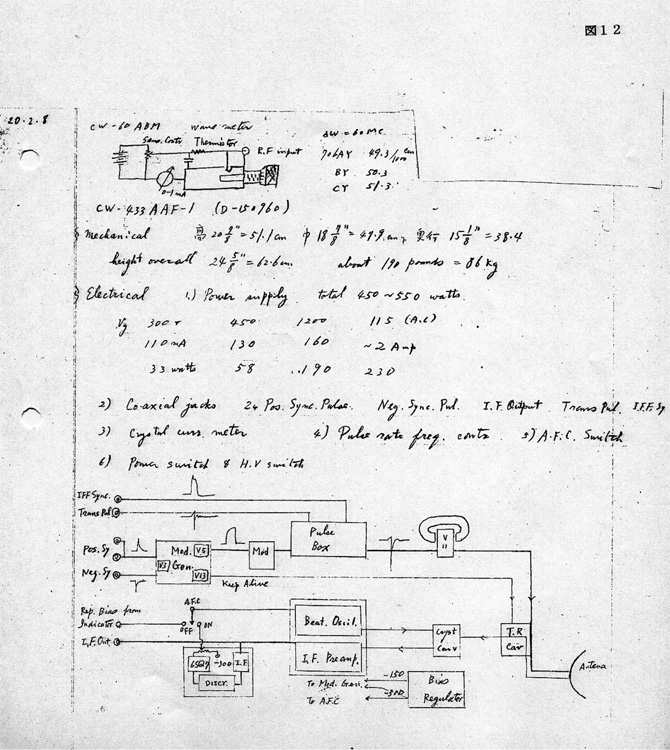 図12
20.2.8
CW-60 ABM wave meter
Sens. Contr. Thermistor
R.F input
0-1 mA
ΔW = 60 MC
706AY 49.3/100 cm
BY 50.3
CY 51.3
CW-433AAF-1 (D-150960)
Mechanical 高 20 1/8" = 51.1 cm 巾 18 7/8" = 47.9 cm, 奥行 15 1/8" = 38.4
height overall 24 5/8" = 62.6 cm about 190 pounds = 86 kg
Electrical 1.) Power supply total 450 ~ 550 watts.
300 v 450 1200 115 (A.C)
110 mA 130 160 ~2 Amp
33 watts 58 190 230
2) Co-axial jacks 2ケ Pos. Sync. Pulse. Neg. Sync. Pul. I.F. Output Trans Pul. I.F.F. Sy
3) Crystal curr. meter 4) Pulse rate freq. contr. 5) A.F.C. Switch
6) Power switch & H.V switch
IFF Sync.
Trans Pul
Pos. Sy
Neg. Sy
Mod. Gen.
V5
V3
V13
Mod
Pulse Box
V 11
Keep Alive
Rep. Bias from Indicator
A.F.C
OFF ON
I.F. Out.
6SN7 -300 I.F.
DISCR.
Beat. Oscil.
I.F. Preamp.
Cryst Conv
T.R Cav
Antena
To Mod. Gen. -150
To A.F.C -300
Bias Regulator